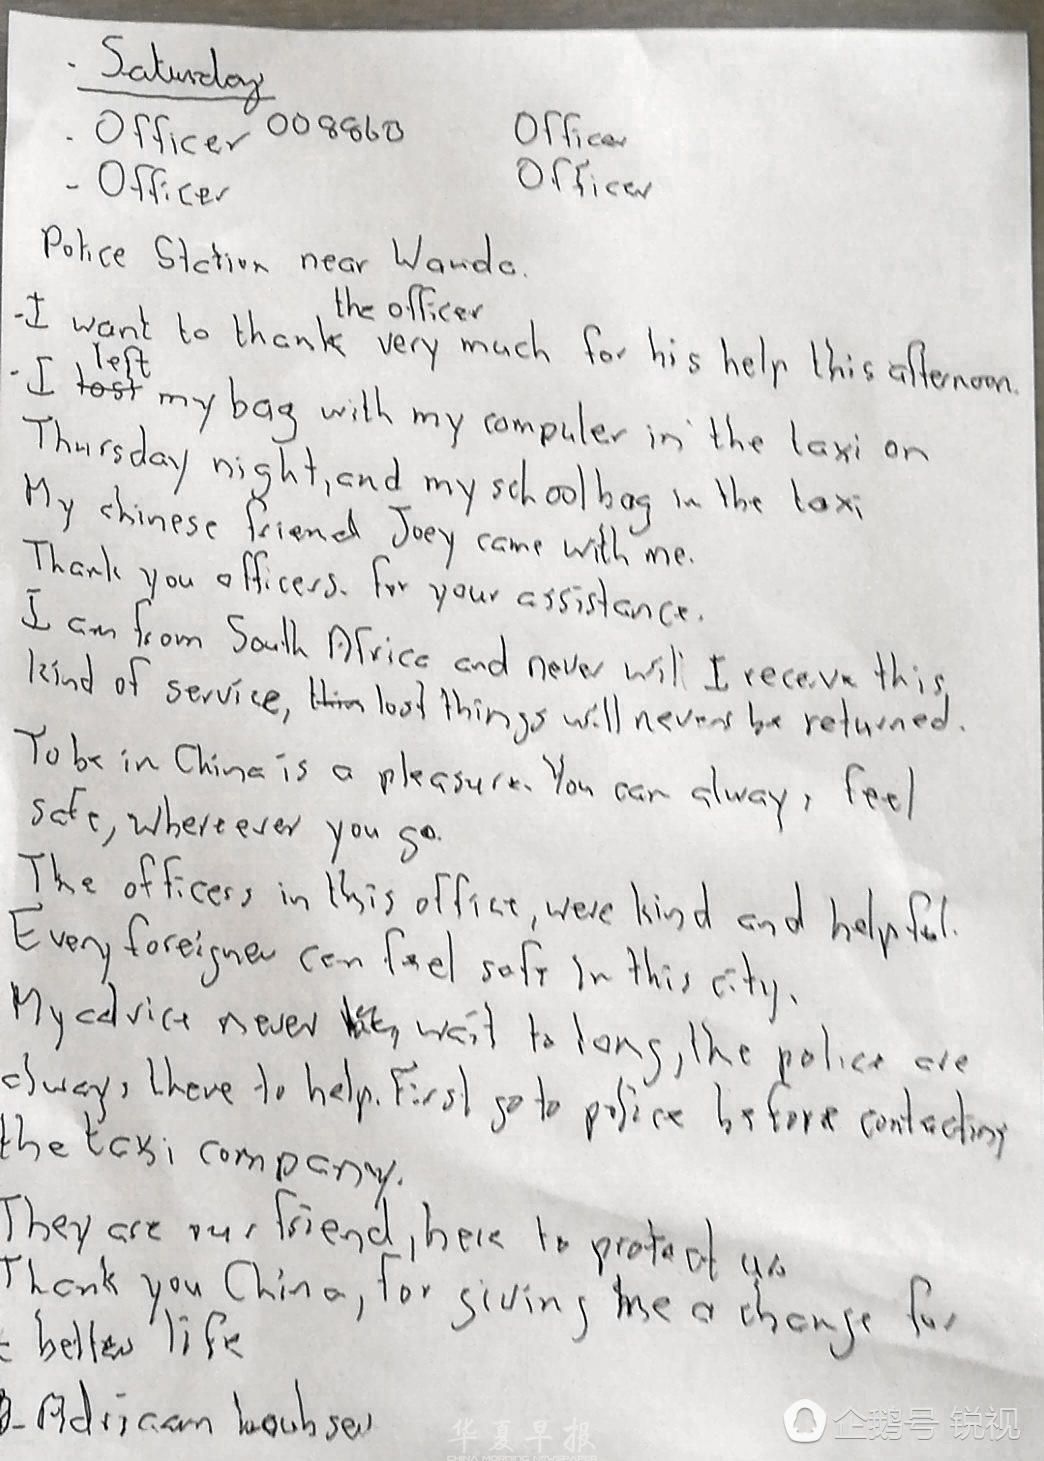 - Saturday
- Officer 008860 Officer
- Officer Officer
Police Station near Wanda.
the officer
- I want to thank very much for his help this afternoon.
left
- I lost my bag with my computer in the taxi on
Thursday night, and my schoolbag in the taxi
My chinese friend Joey came with me.
Thank you officers. for your assistance.
I am from South Africa and never will I receive this
kind of service, lost things will never be returned.
To be in China is a pleasure. You can always feel
safe, whereever you go.
The officers in this office, were kind and helpful.
Every foreigner can feel safe in this city.
My advice never wait to long, the police are
always there to help. First go to police before contacting
the taxi company.
They are our friend, here to protect us
Thank you China, for giving me a change for
better life
- Adriaan
华夏早报
企鹅号 锐视